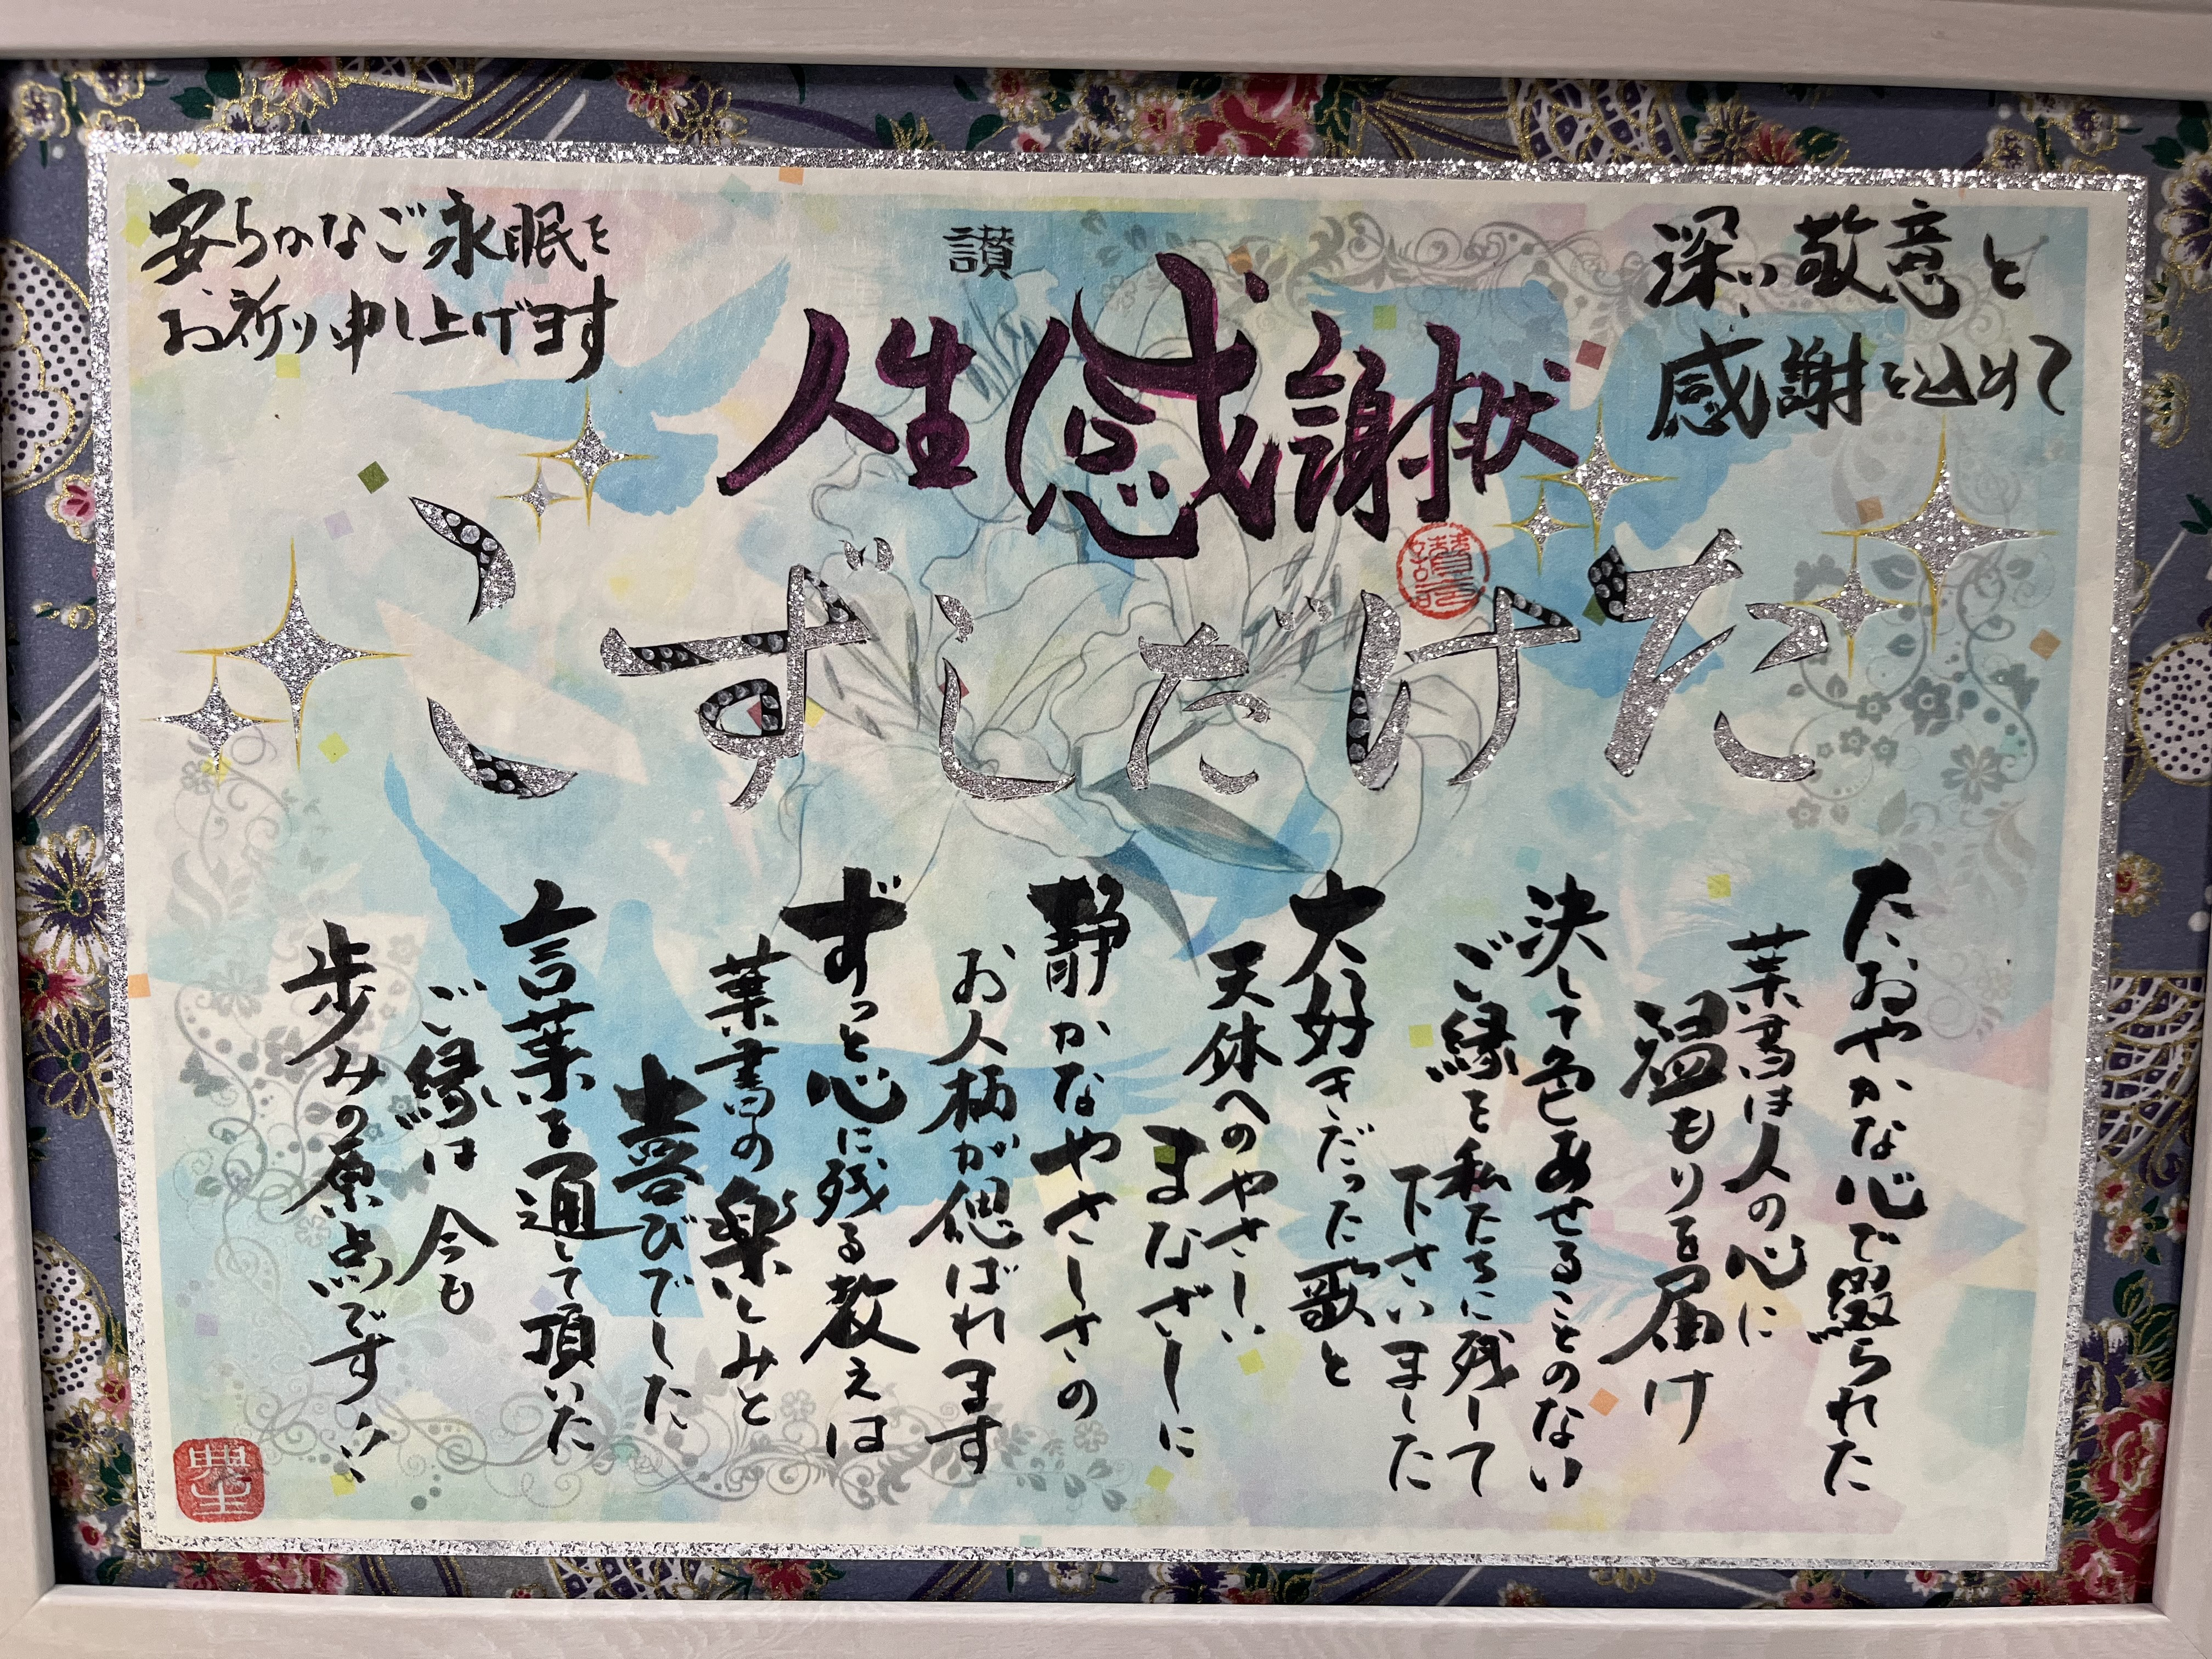 深い敬意と
感謝を込めて
讃
人生感謝状
安らかなご永眠を
お祈り申し上げます
たけだしずこ
たおやかな心で綴られた
葉書は人の心に
温もりを届け
決して色あせることのない
ご縁を私たちに残して
下さいました
大好きだった歌と
天体へのやさしい
まなざしに
静かなやさしさの
お人柄が偲ばれます
ずっと心に残る教えは
葉書の楽しみと
喜びでした
言葉を通して頂いた
ご縁は今も
歩みの原点です!!